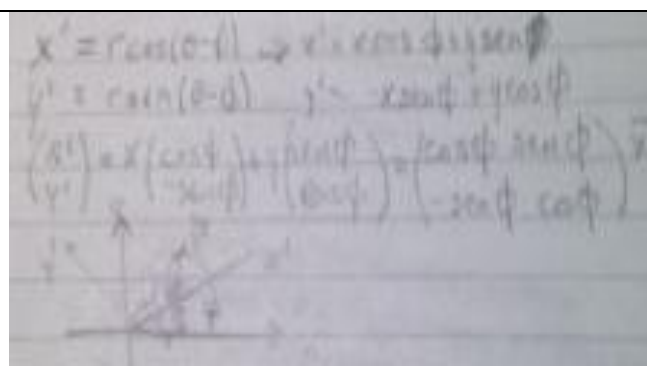 x' = r cos(θ-ϕ) → x' = x cos ϕ + y sen ϕ
y' = r sen(θ-ϕ) y' = -x sen ϕ + y cos ϕ
(x' y') = x (cos ϕ -sen ϕ) + y (sen ϕ cos ϕ) = (cos ϕ sen ϕ -sen ϕ cos ϕ)
y' x'